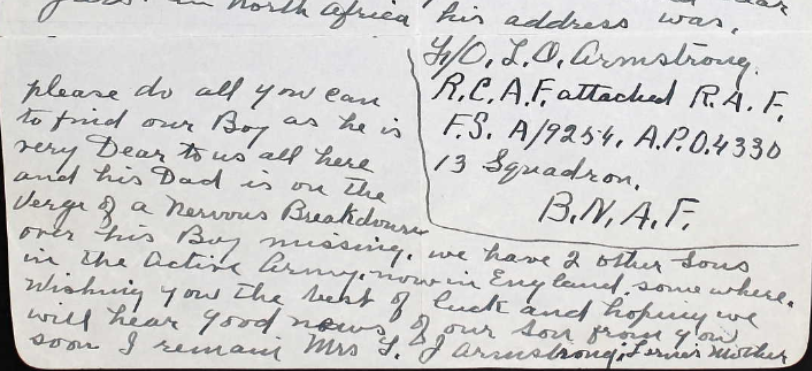 in North Africa
his address was,
F/O. L.O. Armstrong.
R.C.A.F. attached R.A.F.
F.S. A/9254. A.P.O. 4330
13 Squadron,
B.N.A.F.
please do all you can
to find our Boy as he is
very Dear to us all here
and his Dad is on the
Verge of a Nervous Breakdown
over his Boy missing. we have 2 other sons
in the Active Army. now in England. some where.
Wishing you the best of luck and hoping we
will hear good news of our son from you
soon I remain Mrs J Armstrong, Mother